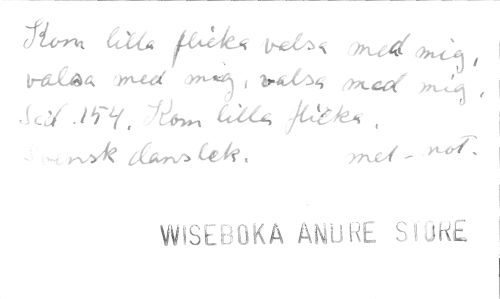 Kom lilla flicka valsa med mig,
valsa med mig, valsa med mig.
Sid. 154. Kom lilla flicka.
Svensk danslek. mel-not.
WISEBOKA ANDRE STORE